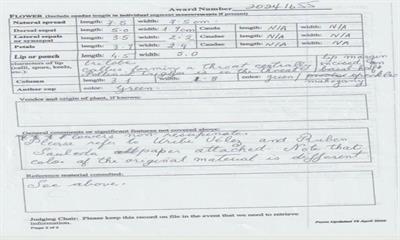 Award Number 20241655
FLOWER (Include caudae length in individual segment measurements if present)
Natural spread length: 7.8 width: 8.5 cm
Dorsal sepal length: 5.0 width: 1.9 cm Cauda length: N/A width: N/A
Lateral sepals or synsepal length: 3.5 width: 2.2 Caudae length: N/A width: N/A
Petals length: 3.7 width: 2.4 Caudae length: N/A width: N/A
Lip or pouch length: 4.5 width: 5.0
characteristics of lip (calli, spurs, keels, etc.) trilobe lip margin
forming a throat centrally
is in the throat basal half
Column length: 3.1 width: .8 color: green/ mahogany
Anther cap color: Green
Vendor and origin of plant, if known:
General comments or significant features not covered above:
Please refer to Uribe Velez and
paper attached. Note that
color of the original material is different
Reference material consulted:
See above.
Judging Chair: Please keep this record on file in the event that we need to retrieve information.
Page 2 of 2
Form Updated 15 April 2009